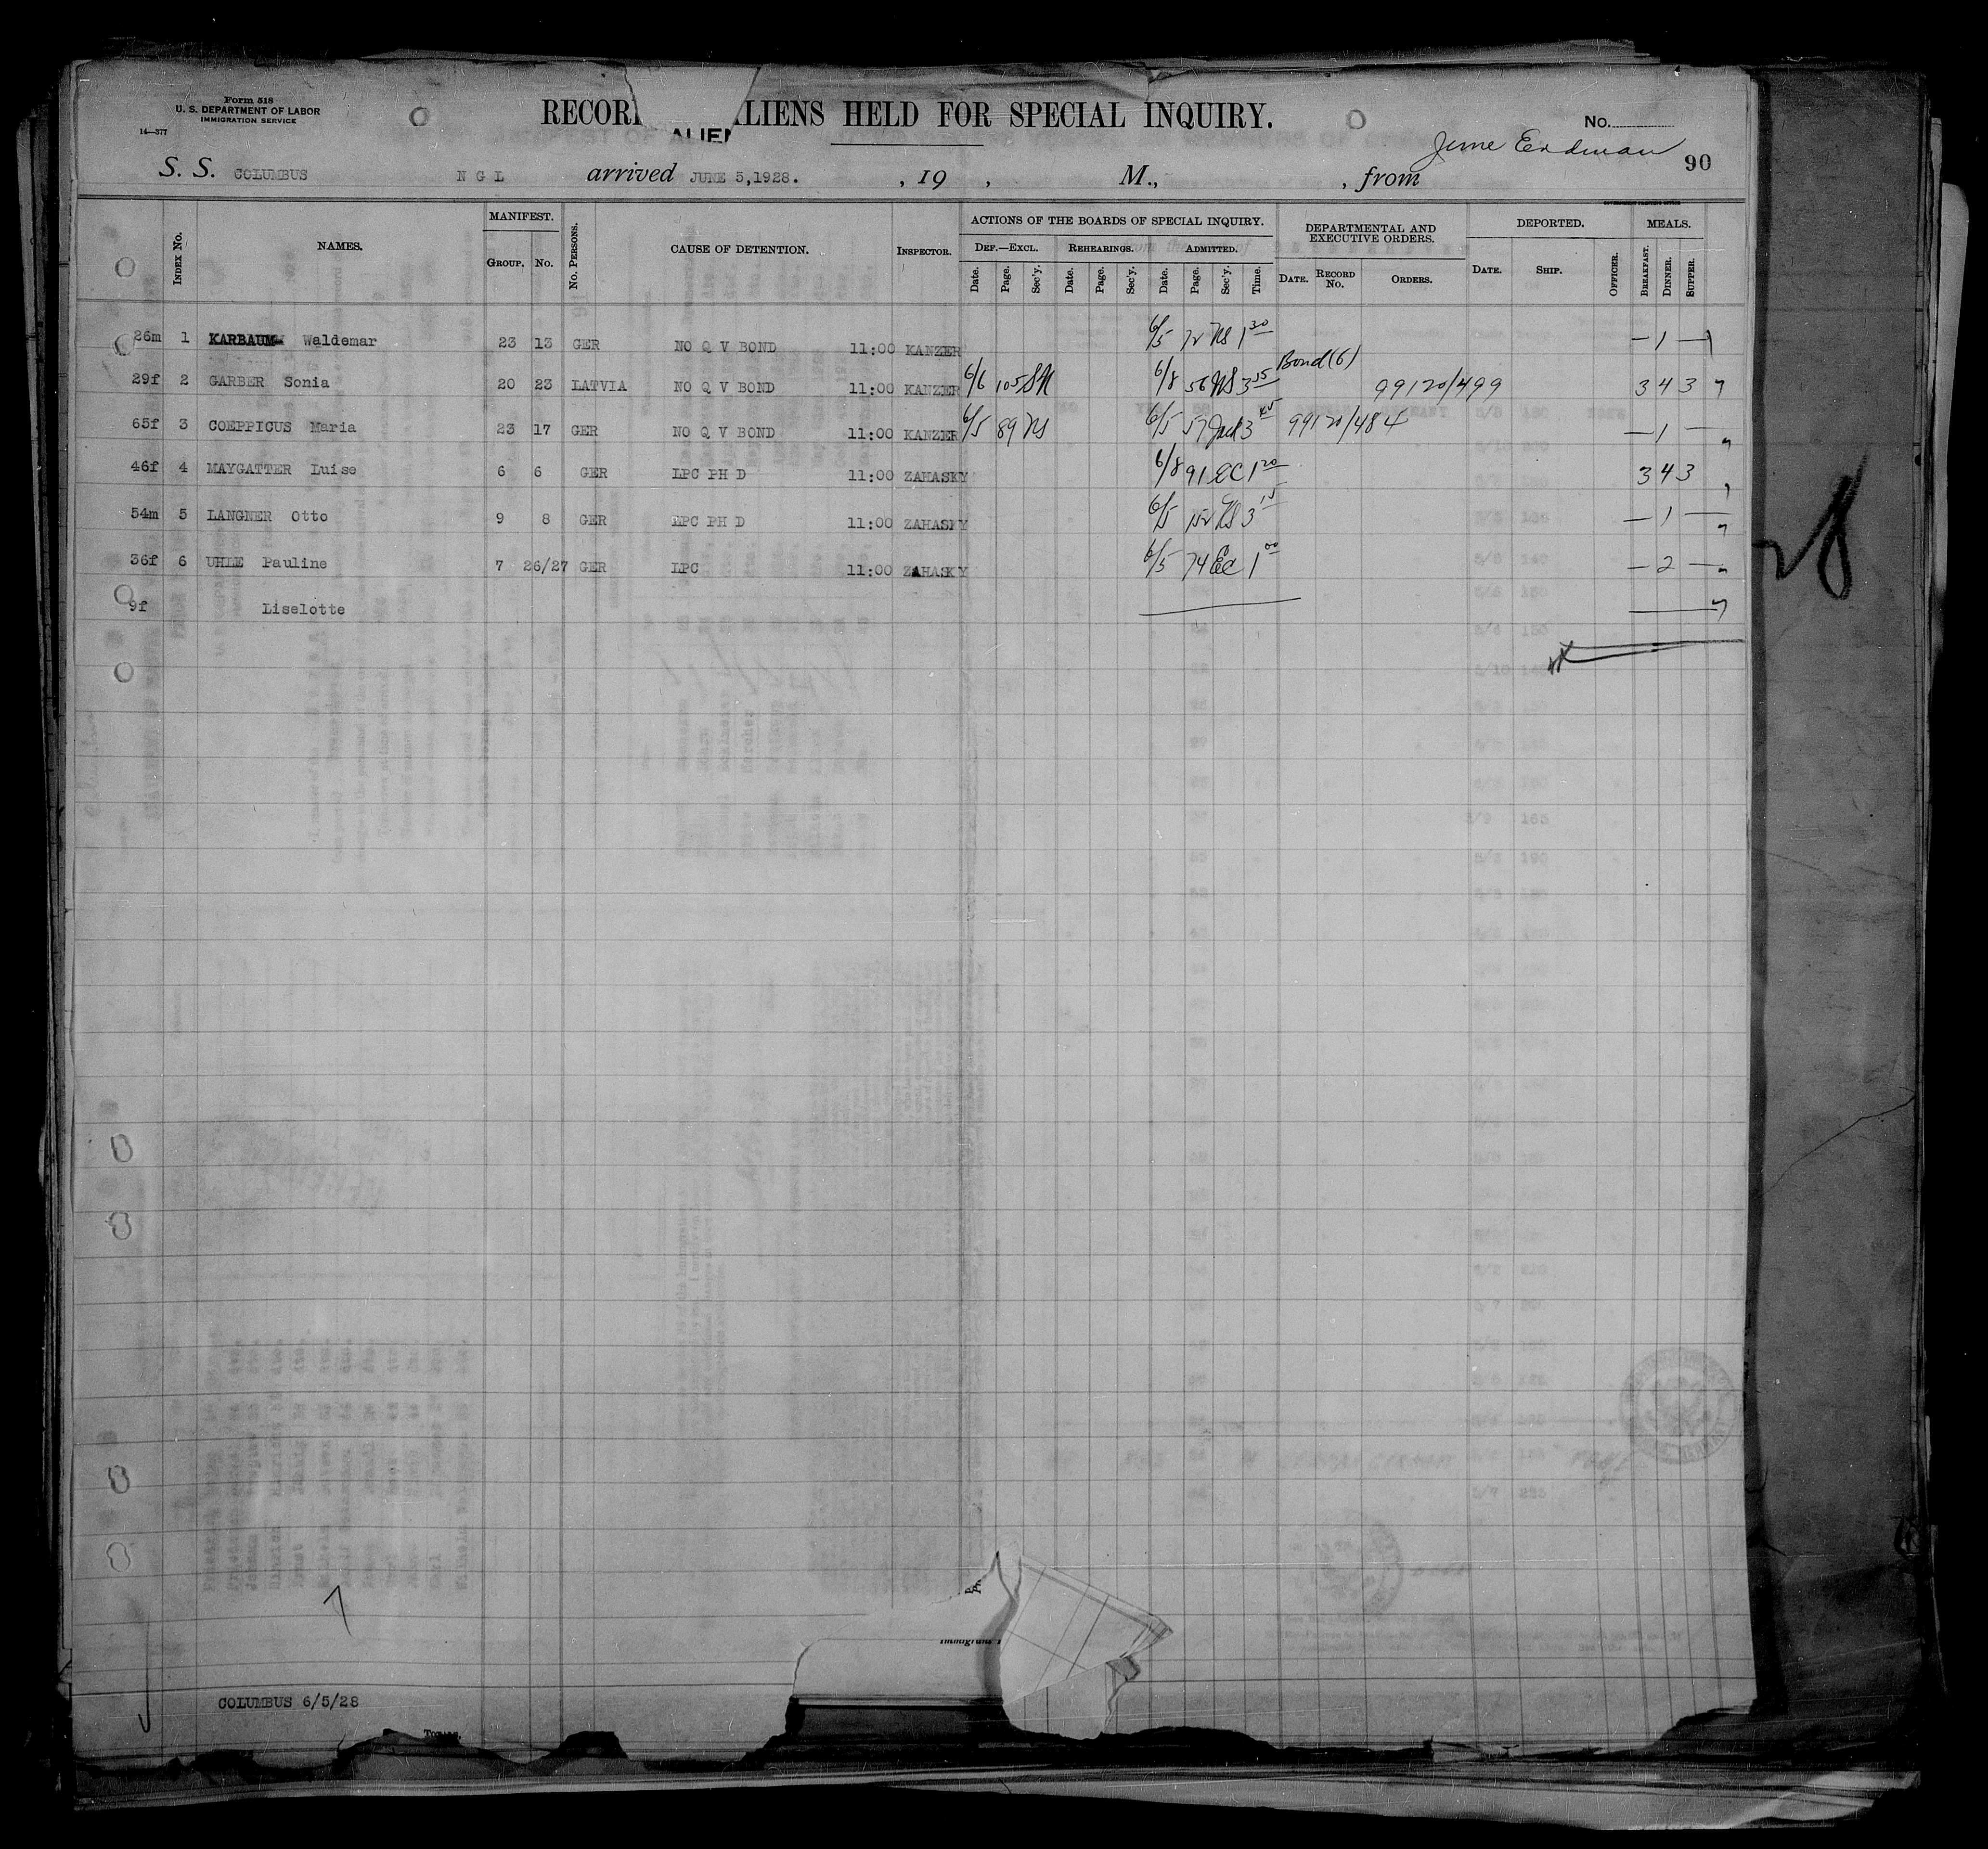 Form 518
U. S. DEPARTMENT OF LABOR
IMMIGRATION SERVICE
14—377
RECOR ALIENS HELD FOR SPECIAL INQUIRY.
ALIEN
No.
90
S. S. COLUMBUS N G L arrived JUNE 5,1928. , 19 , M., , from
INDEX No. NAMES. MANIFEST. GROUP. No. No. PERSONS. CAUSE OF DETENTION. INSPECTOR. ACTIONS OF THE BOARDS OF SPECIAL INQUIRY. DEF.—EXCL. Date. Page. Sec'y. REHEARINGS. Date. Page. Sec'y. ADMITTED. Date. Page. Sec'y. Time. DEPARTMENTAL AND EXECUTIVE ORDERS. DATE. RECORD No. ORDERS. DEPORTED. DATE. SHIP. OFFICER. MEALS. BREAKFAST. DINNER. SUPPER.
26m 1 KARBAUM Waldemar 23 13 GER NO Q V BOND 11:00 KANZER 6/5 72 NS 1 30 — 1 —
Bond (6)
29f 2 GARBER Sonia 20 23 LATVIA NO Q V BOND 11:00 KANZER 6/6 105 6/8 56 NS 3 55 99120/499 3 4 3
65f 3 COEPPICUS Maria 23 17 GER NO Q V BOND 11:00 KANZER 6/5 89 NS 6/5 57 3 45 99120/484 — 1 —
46f 4 MAYGATTER Luise 6 6 GER LPC PH D 11:00 ZAHASKY 6/8 91 EC 1 20 3 4 3
54m 5 LANGNER Otto 9 8 GER LPC PH D 11:00 ZAHASKY 6/5 152 NS 3 15 — 1 —
36f 6 UHLE Pauline 7 26/27 GER LPC 11:00 ZAHASKY 6/5 74 EC 1 00 — 2 —
9f Liselotte
28
Immigrant
COLUMBUS 6/5/28